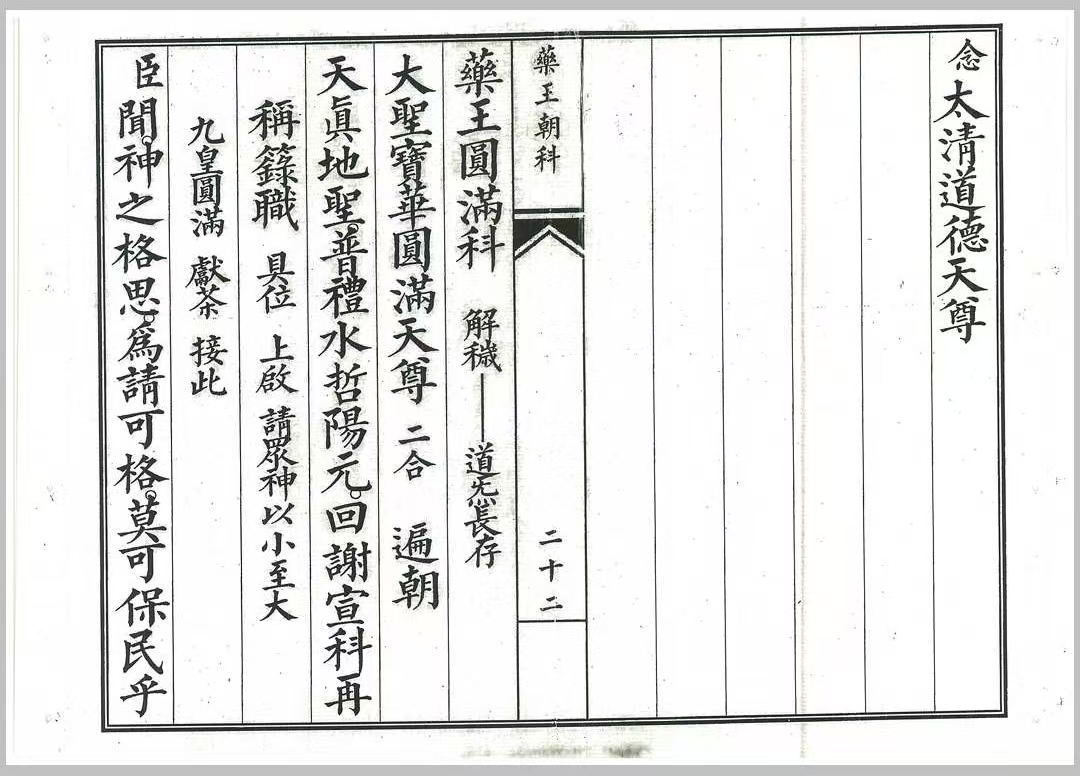 念 太清道德天尊
藥王朝科
二十二
藥王圓滿科 解穢——道炁長存
大聖寶華圓滿天尊 二合 遍朝
天眞地聖。普禮水哲陽元。回謝宣科再
稱籙職 具位 上啟 請眾神以小至大
九皇圓滿 獻茶 接此
臣聞。神之格思。為請可格。莫可保民乎